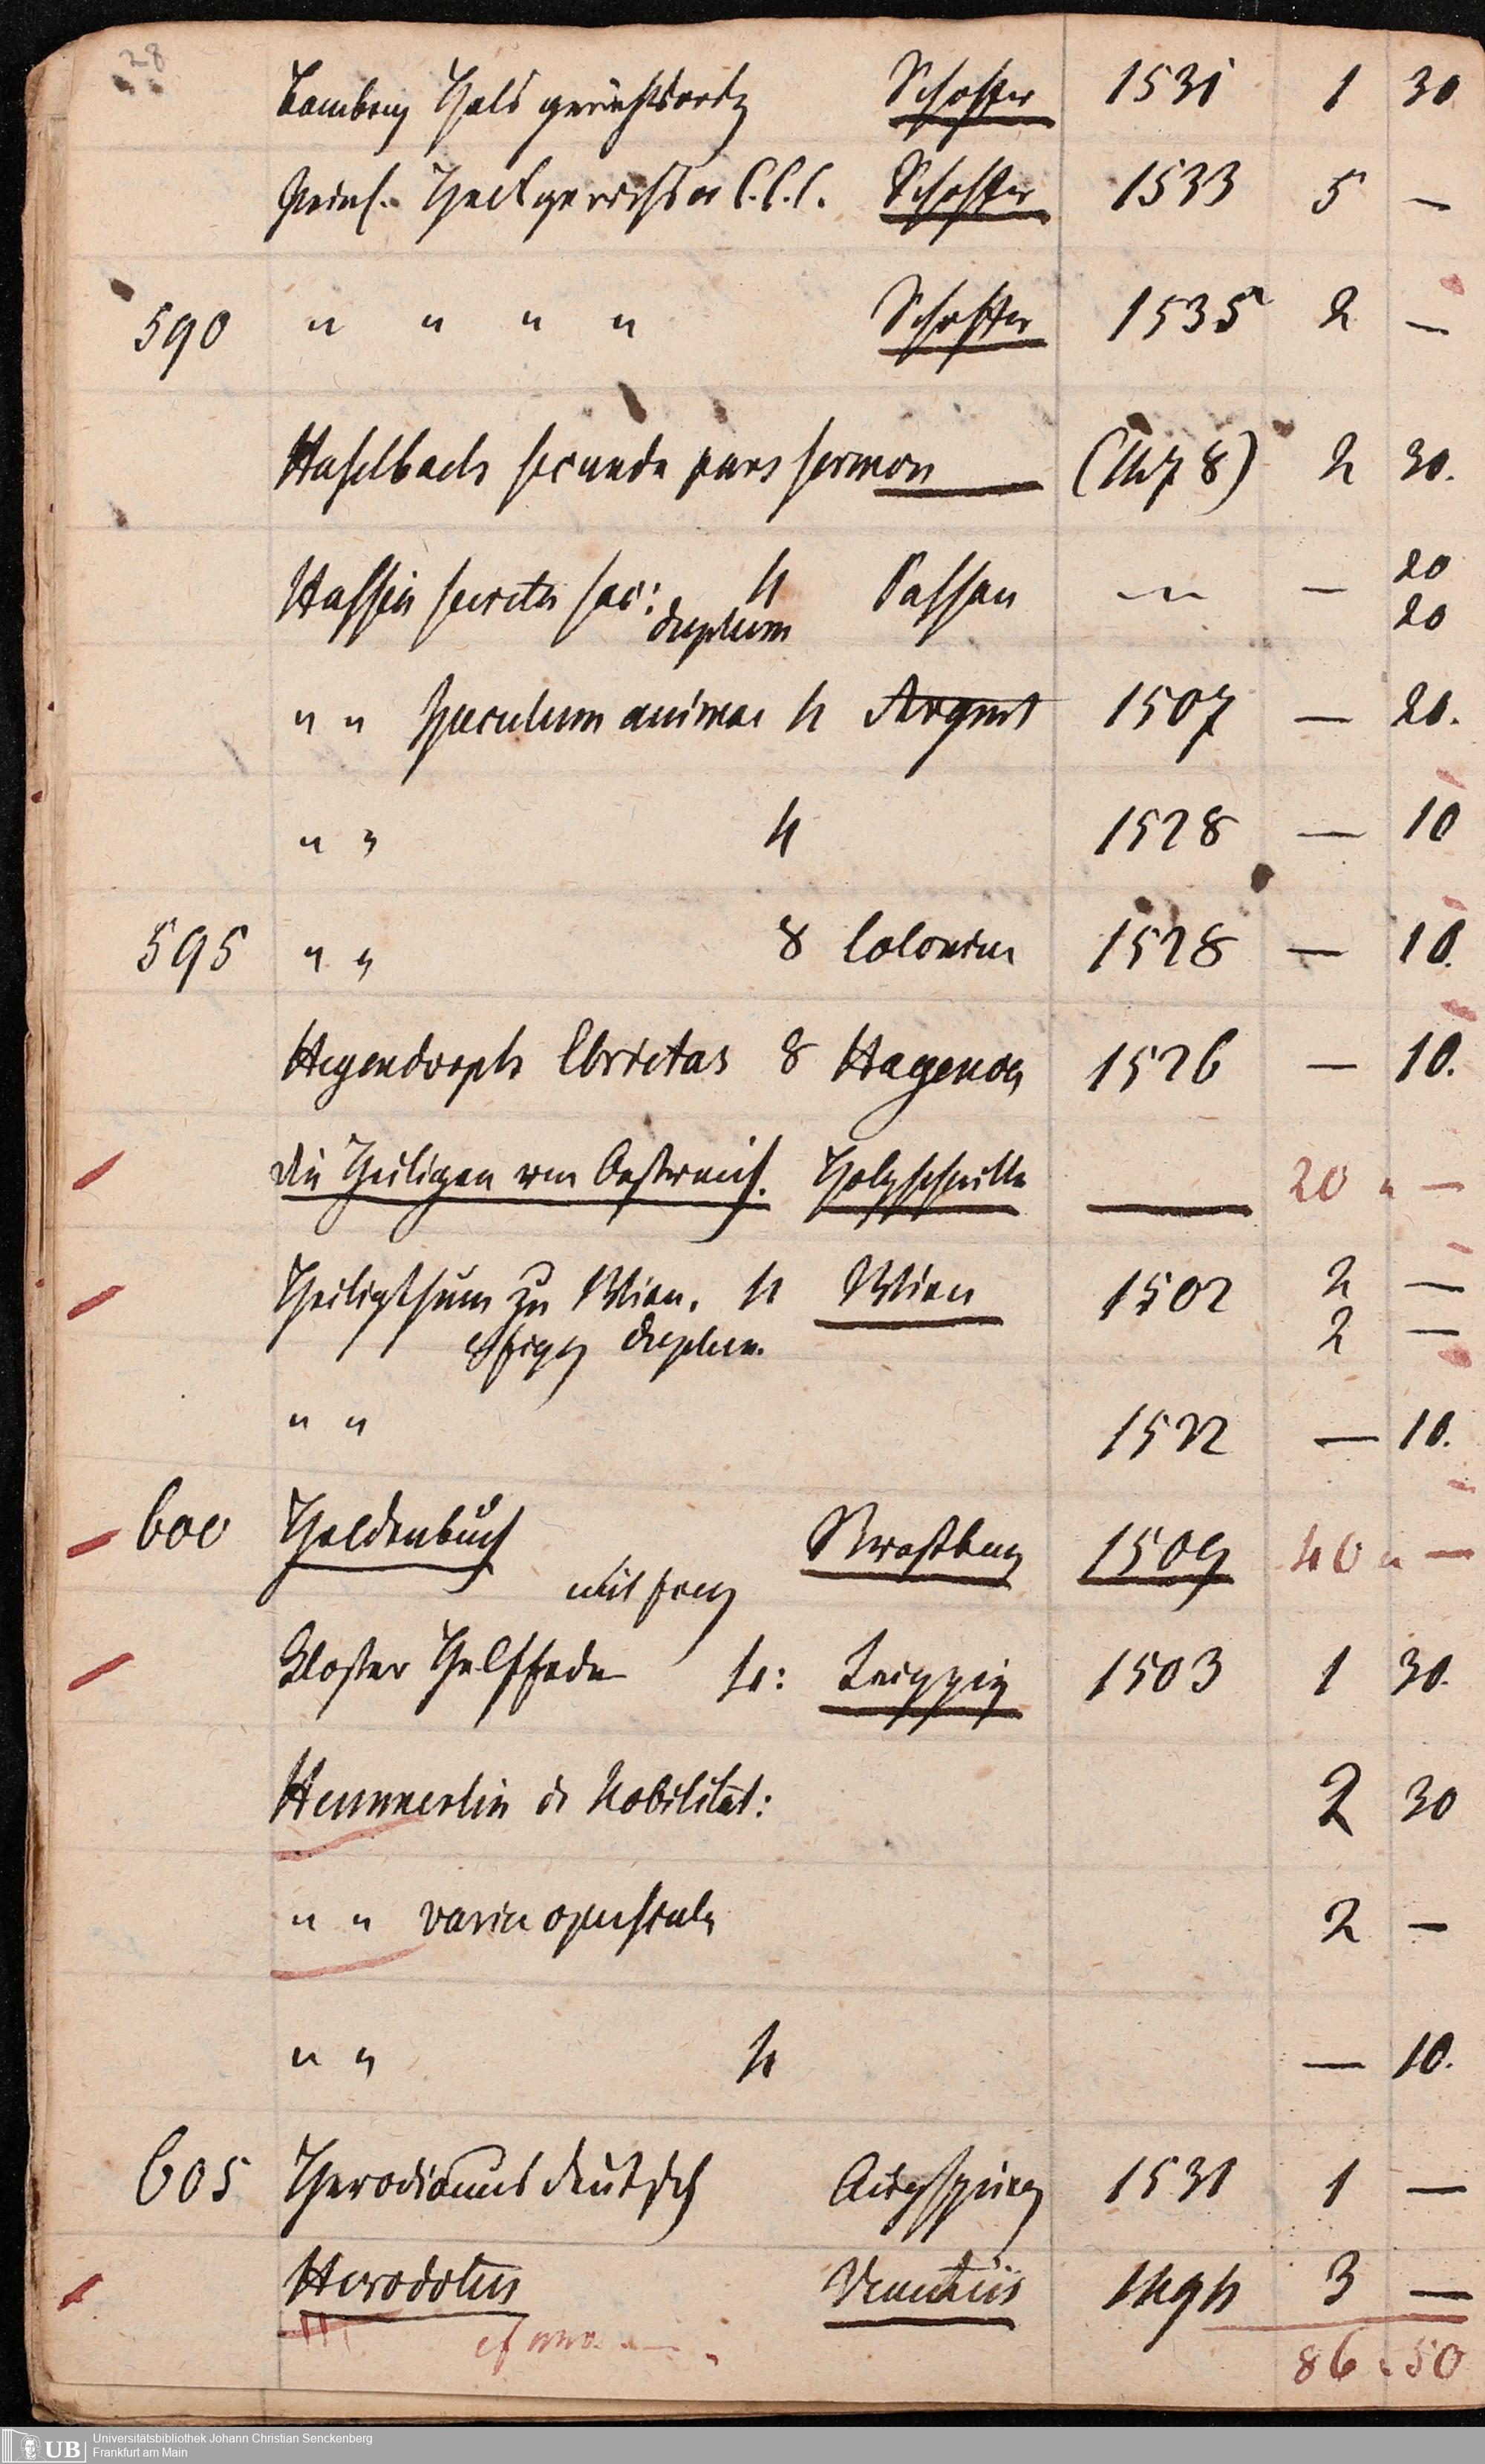 28
Bamberg Halsgerichtsordg Schoffer 1531 1 30
Peinl. Halsgerichts C.C.C. Schoffer 1533 5 —
590 " " " " Schoffer 1535 2 —
Haselbach secunda pars sermon (1478) 2 30.
Hassia secreta sac: 4 Passau — — 20
duplum 20
" " speculum animae 4 Argent 1507 — 20.
" " 4 1528 — 10
595 " " 8 Coloniae 1528 — 10.
Hegendorph Ebrietas 8 Hagenoa 1526 — 10.
Die Heiligen von Oestreich. Holzschnitte — 20 " —
Heiligthum zu Wien. 4 Wien 1502 2 —
duplum. 2 —
" " 1522 — 10.
600 Heldenbuch Strassburg 1509 40 " —
Kloster Helffede 4: Leipzig 1503 1 30.
Hemmerlin de Nobilitat: 2 30
" " varia opuscula 2 —
" " 4 — 10.
605 Herodianus deutsch Augspurg 1531 1 —
Herodotus Venetiis 1494 3 —
86.50
Universitätsbibliothek Johann Christian Senckenberg
Frankfurt am Main
UB